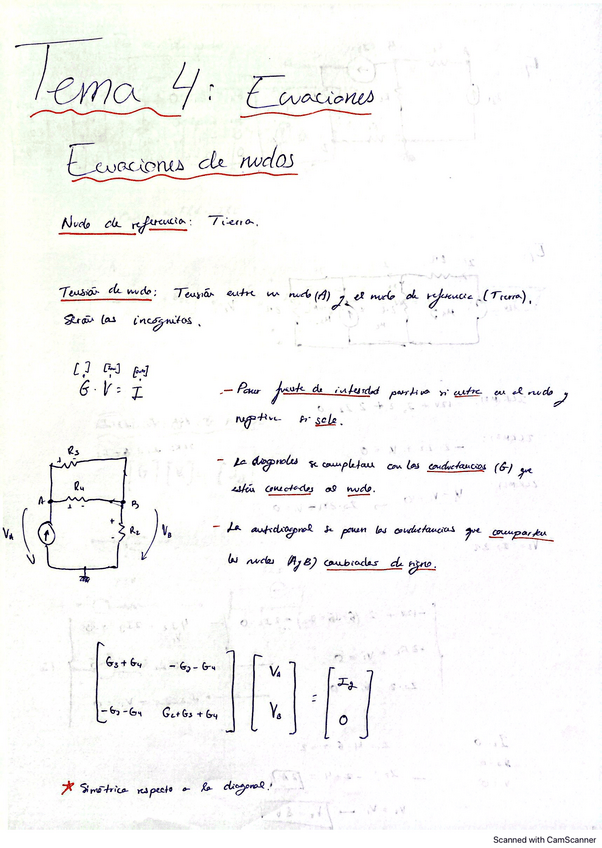 Tema 4: Ecuaciones
Ecuaciones de nudos
Nudo de referencia: Tierra.
Tensión de nudo: Tensión entre un nudo (A) y el nudo de referencia (Tierra).
Serán las incógnitas.
G · V = I
- Poner fuente de intensidad positiva si entra en el nudo y
negativa si sale.
- La diagonales se completan con las conductancias (G) que
están conectadas al nudo.
- La antidiagonal se ponen las conductancias que comparten
los nudos (A y B) cambiadas de signo.
R3
R4
A
B
VA
R2
VB
G3 + G4 -G3 - G4
VA
Ig
=
-G3 - G4 G2 + G3 + G4
VB
0
* Simétrica respecto a la diagonal!
Scanned with CamScanner